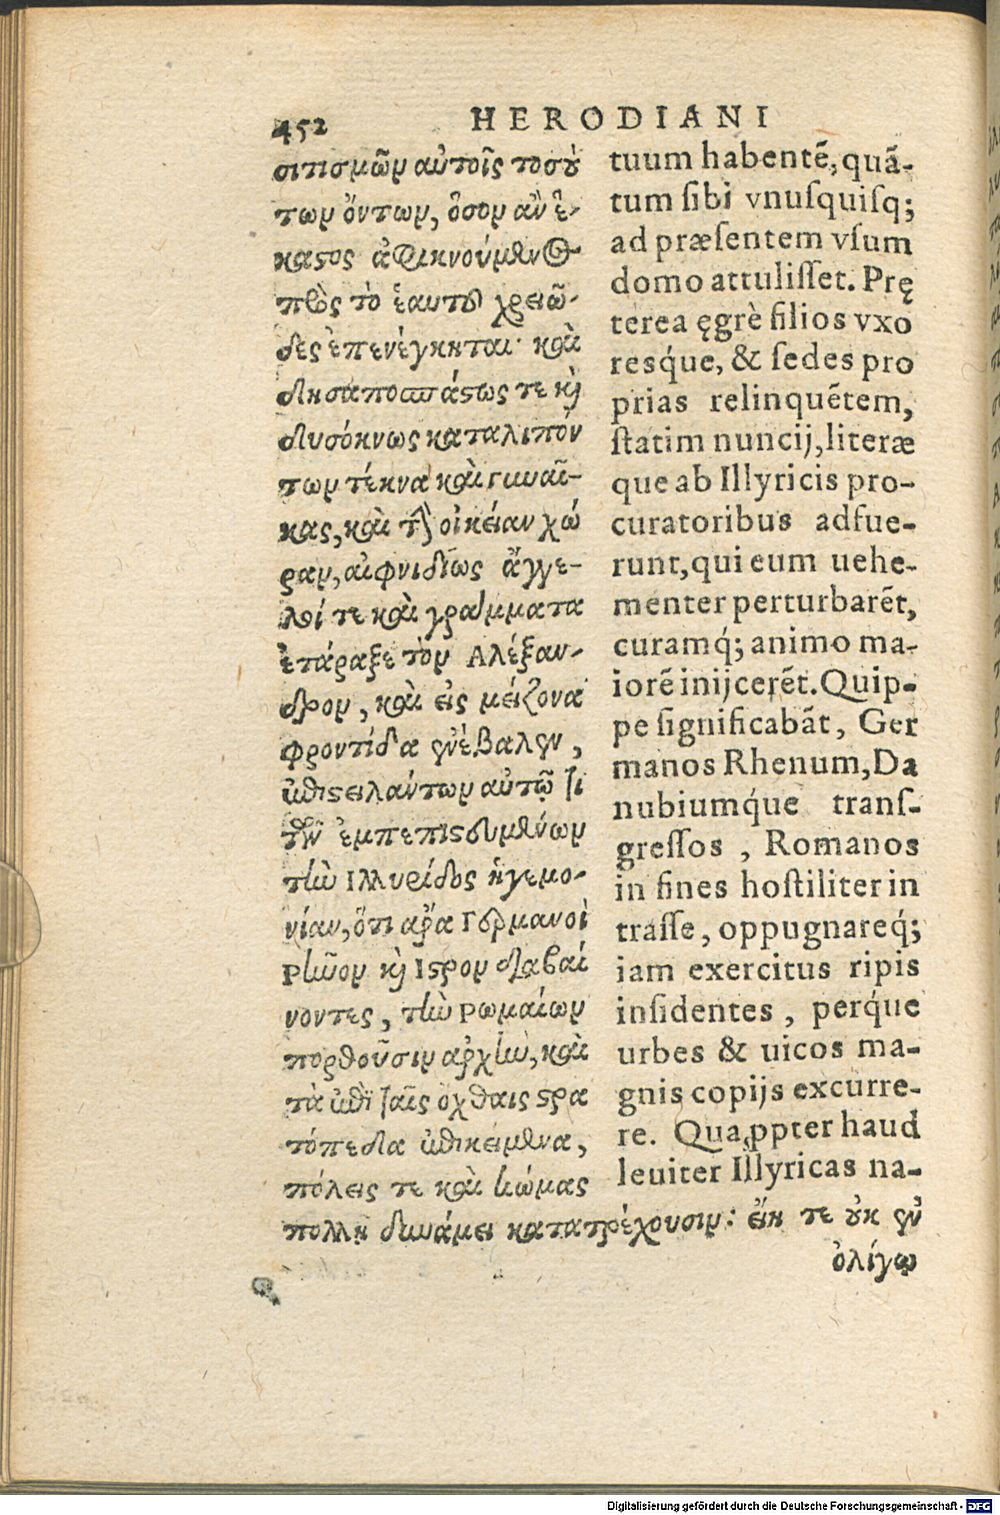 452
HERODIANI
σιτισμῶν αὐτοῖς τοσού
των ὄντων, ὅσον ἂν ἕ-
καστος ἀφικνούμεν@
πρὸς τὸ ἑαυτοῦ χρειῶ-
δες ἐπενέγκηται· καὶ
δυσαποσπάστως τε καὶ
δυσόκνως καταλιπόν
των τέκνα καὶ γυναῖ-
κας, καὶ τὴν οἰκείαν χώ
ραν, αἰφνιδίως ἄγγε-
λοί τε καὶ γράμματα
ἐτάραξε τὸν Αλέξαν-
δρον, καὶ εἰς μείζονα
φροντίδα ἐνέβαλεν,
ἐπιστειλάντων αὐτῷ τι
τῶν ἐμπεπιστευμένων
τὴν Ιλλυρίδος ἡγεμο-
νίαν, ὅτι ἄρα Γερμανοὶ
Ρῆνον καὶ Ιστρον διαβαί
νοντες, τὴν Ρωμαίων
πορθοῦσιν ἀρχὴν, καὶ
τὰ ἐπὶ ταῖς ὄχθαις στρα
τόπεδα ἐπικείμενα,
πόλεις τε καὶ κώμας
πολλῇ δυνάμει κατατρέχουσιν· εἴη τε οὐκ ἐν
tuum habentẽ, quã-
tum sibi vnusquisq;
ad præsentem vsum
domo attulisset. Prę
terea ęgrè filios vxo
resq́ue, & sedes pro
prias relinquẽtem,
statim nuncij, literæ
que ab Illyricis pro-
curatoribus adfue-
runt, qui eum uehe-
menter perturbarẽt,
curamq́; animo ma-
iorẽ inijcerẽt. Quip-
pe significabãt, Ger
manos Rhenum, Da
nubiumq́ue trans-
gressos , Romanos
in fines hostiliter in
trasse, oppugnareq́;
iam exercitus ripis
insidentes , perq́ue
urbes & uicos ma-
gnis copijs excurre-
re. Quaꝓpter haud
leuiter Illyricas na-
ὀλίγῳ
Digitalisierung gefördert durch die Deutsche Forschungsgemeinschaft - DFG